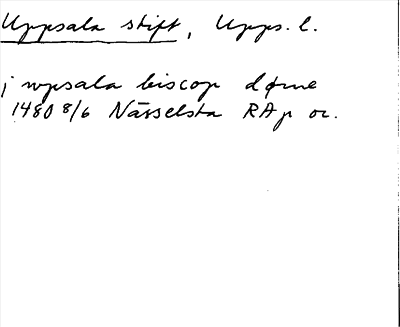 Uppsala stift, Upps. l.
j wpsala biscop døme
1480 8/6 Närselsta RAp or.